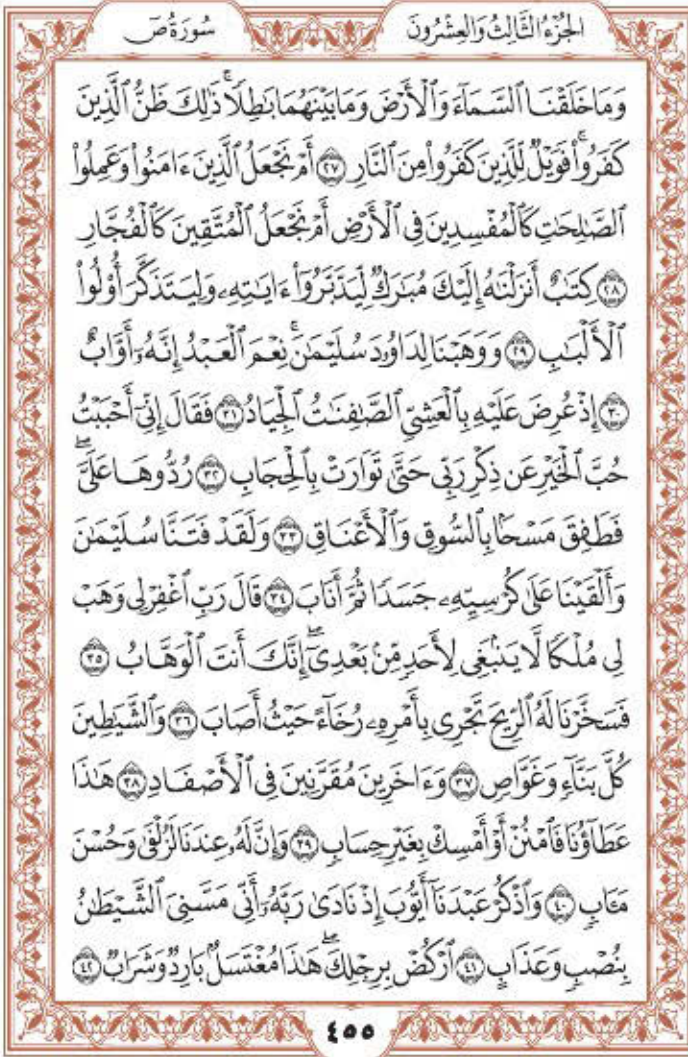 الجُزْءُ الثَّالِثُ وَالعِشْرُونَ
سُورَةُ صٓ
وَمَا خَلَقْنَا ٱلسَّمَآءَ وَٱلْأَرْضَ وَمَا بَيْنَهُمَا بَٰطِلًاۚ ذَٰلِكَ ظَنُّ ٱلَّذِينَ
كَفَرُواْۚ فَوَيْلٌ لِّلَّذِينَ كَفَرُواْ مِنَ ٱلنَّارِ ٢٧ أَمْ نَجْعَلُ ٱلَّذِينَ ءَامَنُواْ وَعَمِلُواْ
ٱلصَّٰلِحَٰتِ كَٱلْمُفْسِدِينَ فِي ٱلْأَرْضِ أَمْ نَجْعَلُ ٱلْمُتَّقِينَ كَٱلْفُجَّارِ
٢٨ كِتَٰبٌ أَنزَلْنَٰهُ إِلَيْكَ مُبَٰرَكٌ لِّيَدَّبَّرُوٓاْ ءَايَٰتِهِۦ وَلِيَتَذَكَّرَ أُوْلُواْ
ٱلْأَلْبَٰبِ ٢٩ وَوَهَبْنَا لِدَاوُۥدَ سُلَيْمَٰنَۚ نِعْمَ ٱلْعَبْدُ إِنَّهُۥٓ أَوَّابٌ
٣٠ إِذْ عُرِضَ عَلَيْهِ بِٱلْعَشِيِّ ٱلصَّٰفِنَٰتُ ٱلْجِيَادُ ٣١ فَقَالَ إِنِّيٓ أَحْبَبْتُ
حُبَّ ٱلْخَيْرِ عَن ذِكْرِ رَبِّي حَتَّىٰ تَوَارَتْ بِٱلْحِجَابِ ٣٢ رُدُّوهَا عَلَيَّۖ
فَطَفِقَ مَسْحًۢا بِٱلسُّوقِ وَٱلْأَعْنَاقِ ٣٣ وَلَقَدْ فَتَنَّا سُلَيْمَٰنَ
وَأَلْقَيْنَا عَلَىٰ كُرْسِيِّهِۦ جَسَدًا ثُمَّ أَنَابَ ٣٤ قَالَ رَبِّ ٱغْفِرْ لِي وَهَبْ
لِي مُلْكًا لَّا يَنۢبَغِي لِأَحَدٍ مِّنۢ بَعْدِيٓۖ إِنَّكَ أَنتَ ٱلْوَهَّابُ ٣٥
فَسَخَّرْنَا لَهُ ٱلرِّيحَ تَجْرِي بِأَمْرِهِۦ رُخَآءً حَيْثُ أَصَابَ ٣٦ وَٱلشَّيَٰطِينَ
كُلَّ بَنَّآءٍ وَغَوَّاصٍ ٣٧ وَءَاخَرِينَ مُقَرَّنِينَ فِي ٱلْأَصْفَادِ ٣٨ هَٰذَا
عَطَآؤُنَا فَٱمْنُنْ أَوْ أَمْسِكْ بِغَيْرِ حِسَابٍ ٣٩ وَإِنَّ لَهُۥ عِندَنَا لَزُلْفَىٰ وَحُسْنَ
مَـَٔابٍ ٤٠ وَٱذْكُرْ عَبْدَنَآ أَيُّوبَ إِذْ نَادَىٰ رَبَّهُۥٓ أَنِّي مَسَّنِيَ ٱلشَّيْطَٰنُ
بِنُصْبٍ وَعَذَابٍ ٤١ ٱرْكُضْ بِرِجْلِكَۖ هَٰذَا مُغْتَسَلٌۢ بَارِدٌ وَشَرَابٌ ٤٢
٤٥٥